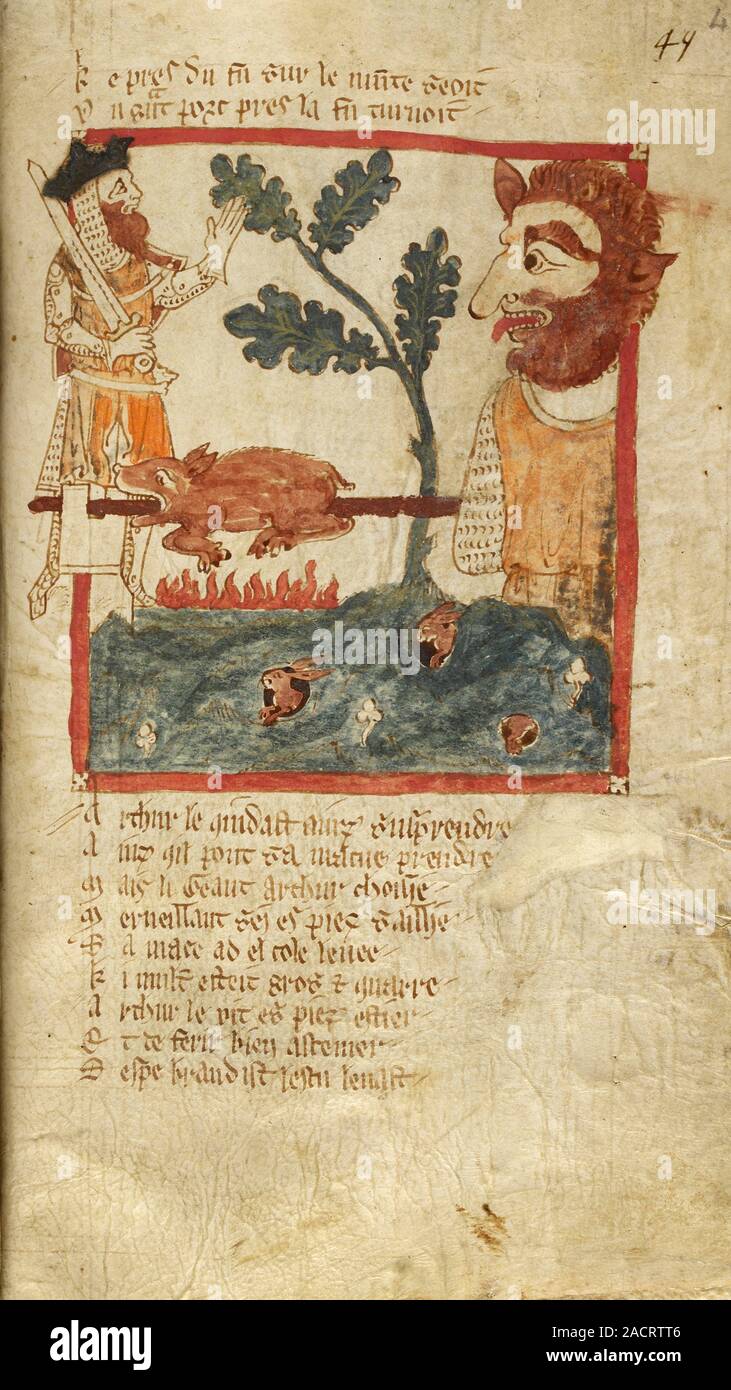 49
K e pres du fu sur le munte seoit
U n g̃nt porc pres la fu turnoit
A rthur le quidast ainz surprendre
A inz qil pout sa macue prendre
M ais li Geant arthur choisie
M erueillant sei es piez saillie
S a mace ad el cole leuee
K i mult esteit gros & quarre
A rthur le vit es piez ester
E t de ferir bien
D espe brandist lescu
alamy
Image ID: 2ACRTT6
www.alamy.com